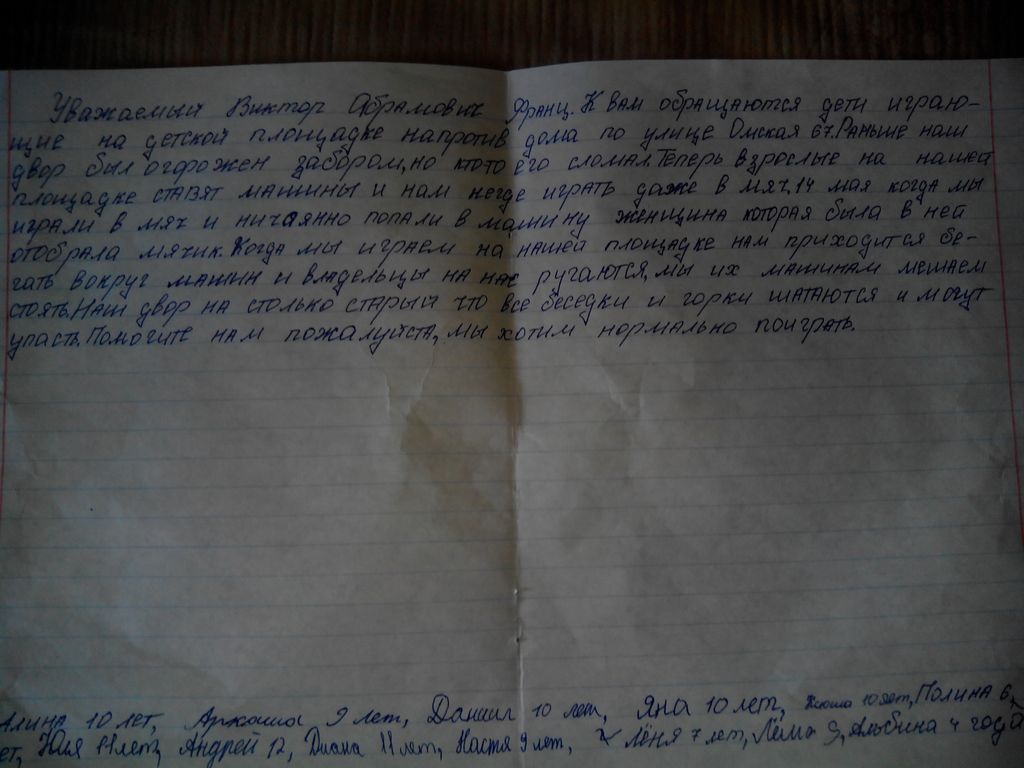 Уважаемый Виктор Абрамович Франц. К вам обращаются дети играю-
щие на детской площадке напротив дома по улице Омская 67. Раньше наш
двор был огорожен забором, но кто то его сломал. Теперь взрослые на нашей
площадке ставят машины и нам негде играть даже в мяч, 14 мая когда мы
играли в мяч и ничаянно попали в машину женщина которая была в ней
отобрала мячик. Когда мы играем на нашей площадке нам приходится бе-
гать вокруг машин и владельцы на нас ругаются, мы их машинам мешаем
стоять. Наш двор на столько старый что все беседки и горки шатаются и могут
упасть. Помогите нам пожалуйста, мы хотим нормально поиграть.
Алина 10 лет, Аркаша 9 лет, Даниил 10 лет, Яна 10 лет, Ксюша 10 лет, Полина 6 л
ет, Юля 11 лет, Андрей 12, Диана 11 лет, Настя 9 лет, Лёня 7 лет, Лёша 9, Альбина 4 года